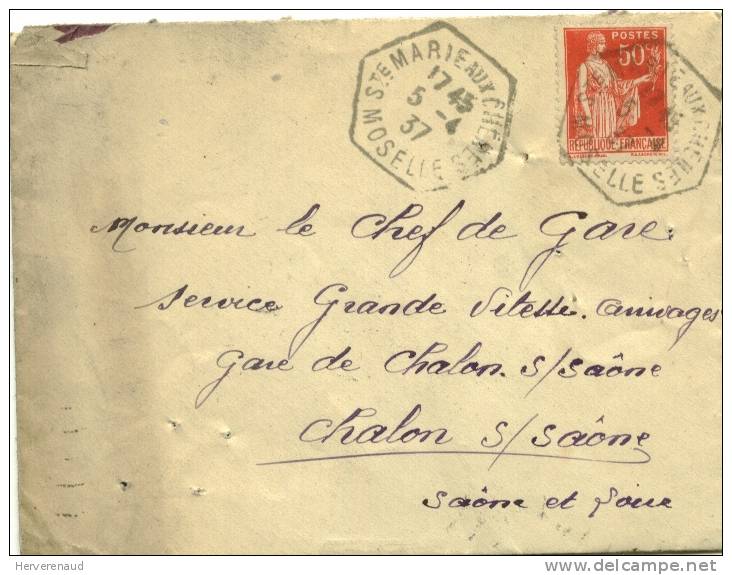 STE MARIE AUX CHENES
17 45
5 -4
37
MOSELLE
POSTES
50c
REPUBLIQUE FRANÇAISE
Monsieur le Chef de Gare
Service Grande Vitesse. arrivages
Gare de Chalon. s/Saône
Chalon s/Saône
Saône et Loire
Herverenaud
delcampe.net